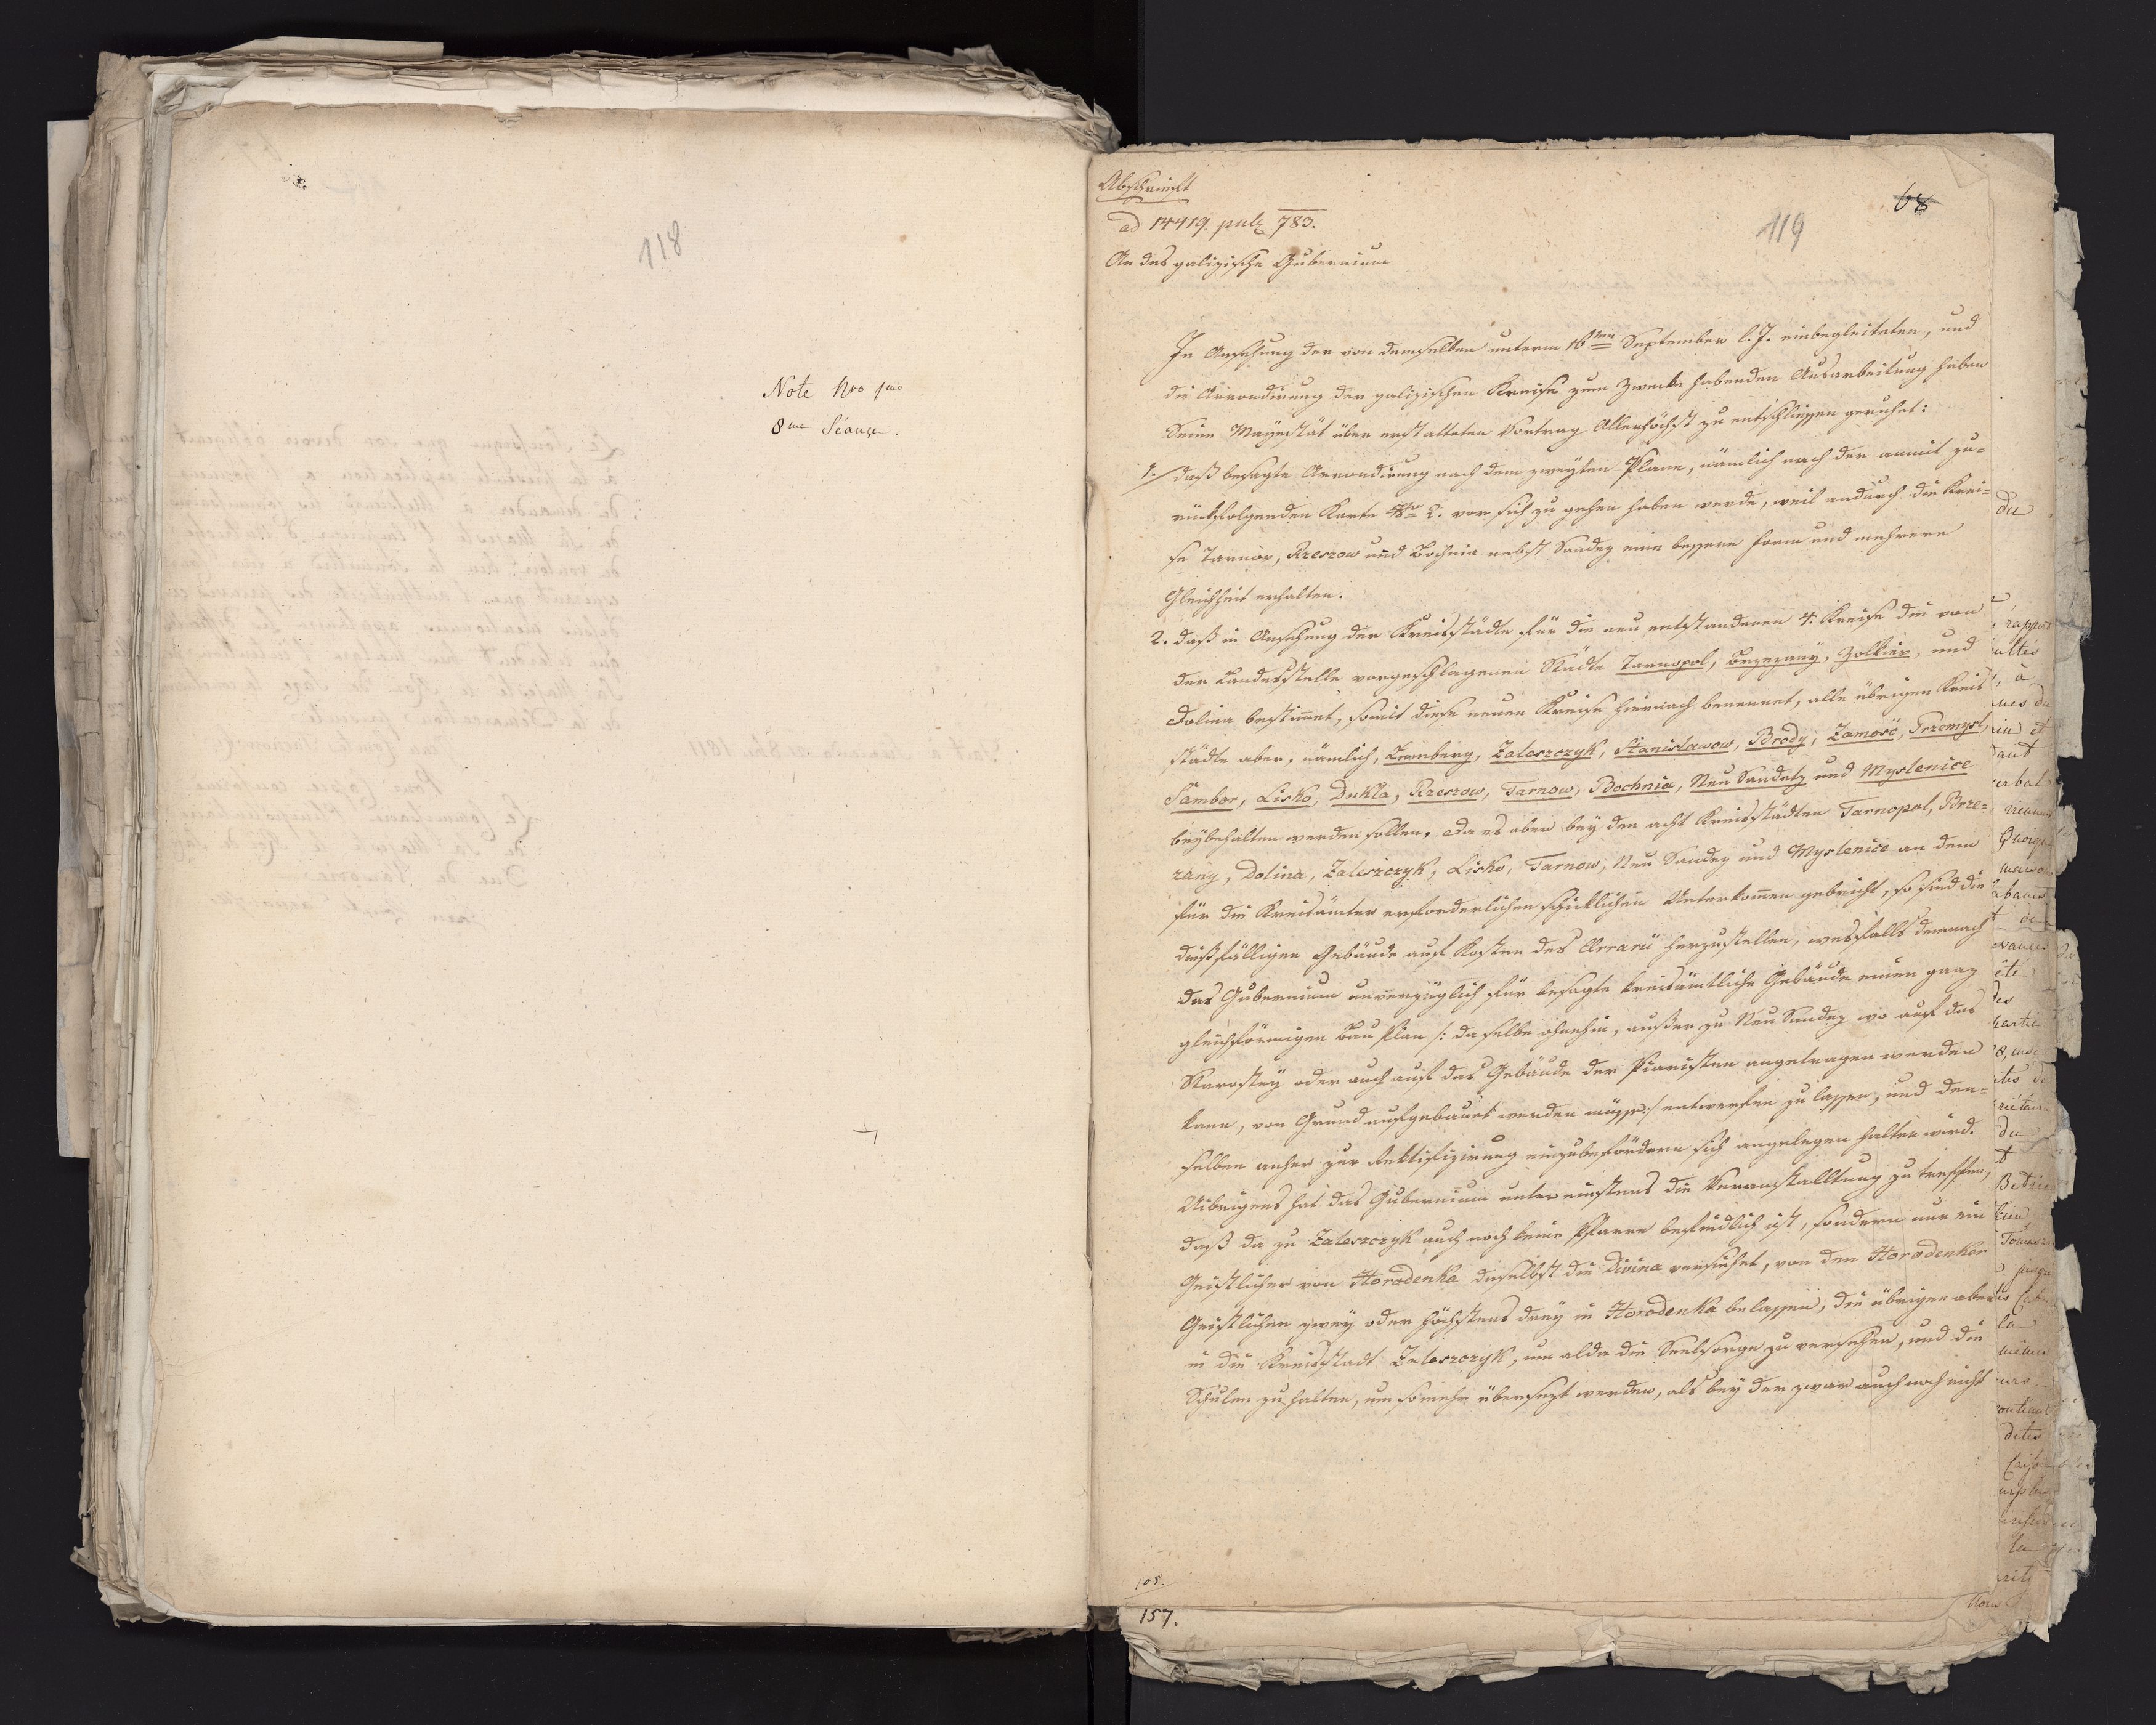 118
Note Nro 1mo
8me Séance.
Abschrift
68
119
ad 14419. pulz 783.
An das galizische Gubernium
In Ansehung der von demselben unterm 16ten September l. J. einbegleiteten, und
die Arrondirung der galizischen Kreise zum Zwecke habenden Ausarbeitung haben
Seine Mayestät über erstatteten Vortrag Allerhöchst zu entschliessen geruhet:
1. daß besagte Arrondirung nach dem zweyten Plane, nämlich nach der anmit zu-
rückfolgenden Karte Nro 2. vor sich zu gehen haben werde, weil andurch die Krei-
se Tarnow, Rzeszow und Bochnia nebst Sandez eine bessere Form und mehrere
Gleichheit erhalten.
2. daß in Ansehung der Kreisstädte für die neu entstandenen 4. Kreise die von
der Landesstelle vorgeschlagenen Städte Tarnopol, Brzezany, Zolkiew, und
Dolina bestimmt, somit diese neuen Kreise hiernach benennet, alle übrigen Kreis
städte aber, nämlich, Lemberg, Zaleszczyk, Stanislawow, Brody, Zamość, Przemysl,
Sambor, Lisko, Dukla, Rzeszow, Tarnow, Bochnia, Neu Sandetz und Myslenice
beybehalten werden sollen. Da es aber bey den acht Kreisstädten Tarnopol, Brze-
zany, Dolina, Zaleszczyk, Lisko, Tarnow, Neu Sandez und Myslenice an dem
für die Kreisämter erforderlichen schicklichen Unterkommen gebricht, so sind die
dießfälligen Gebäude auf Kosten des Ärarii herzustellen, wesfalls demnach
das Gubernium unverzüglich für besagte kreisämtliche Gebäude einen ganz
gleichförmigen Bau Plan /: da selbe ohnehin, außer zu Neu Sandez wo auf das
Starostey oder auch auf das Gebäude der Piaristen angetragen werden
kann, von Grund aufgebauet werden müsse :/ entwerfen zu lassen, und den-
selben anher zur Rektifizirung einzubefördern sich angelegen halten wird.
Uibrigens hat das Gubernium unter einstens die Veranstalltung zu treffen,
daß da zu Zaleszczyk auch noch keine Pfarre befindlich ist, sondern nur ein
Geistlicher von Horodenka daselbst die Divina versiehet, von den Horodenker
Geistlichen zwey oder höchstens drey in Horodenka belassen, die übrigen aber
in die Kreisstadt Zaleszczyk, um alda die Seelsorge zu versehen, und die
Schulen zu halten, um somehr übersezt werden, als bey der zwar auch noch nicht
105.
157.